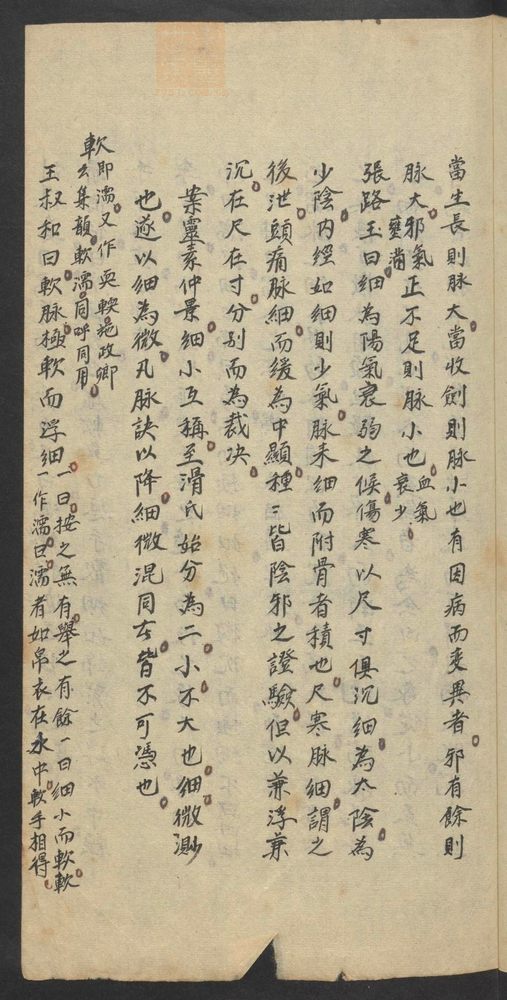 當生長則脉大當收斂則脉小也有因病而变異者邪有餘則
脉大邪氣壅滿正不足則脉小也血氣衰少
張路玉曰細為陽氣衰弱之候傷寒以尺寸俱沉細為太陰為
少陰内經如細則少氣脉来細而附骨者積也尺寒脉細謂之
後泄頭痛脉細而缓為中顯種〻皆陰邪之證驗但以兼浮兼
沉在尺在寸分别而為裁决
案靈素仲景細小互稱至滑氏始分為二小不大也細微渺
也遂以細為微凡脉訣以降細微混同去皆不可憑也
軟即濡又作耎輭施政卿
云集韻軟濡同呼同用
王叔和曰軟脉極軟而浮細一曰按之無有舉之有餘一曰細小而軟軟
一作濡曰濡者如帛衣在水中軟手相得